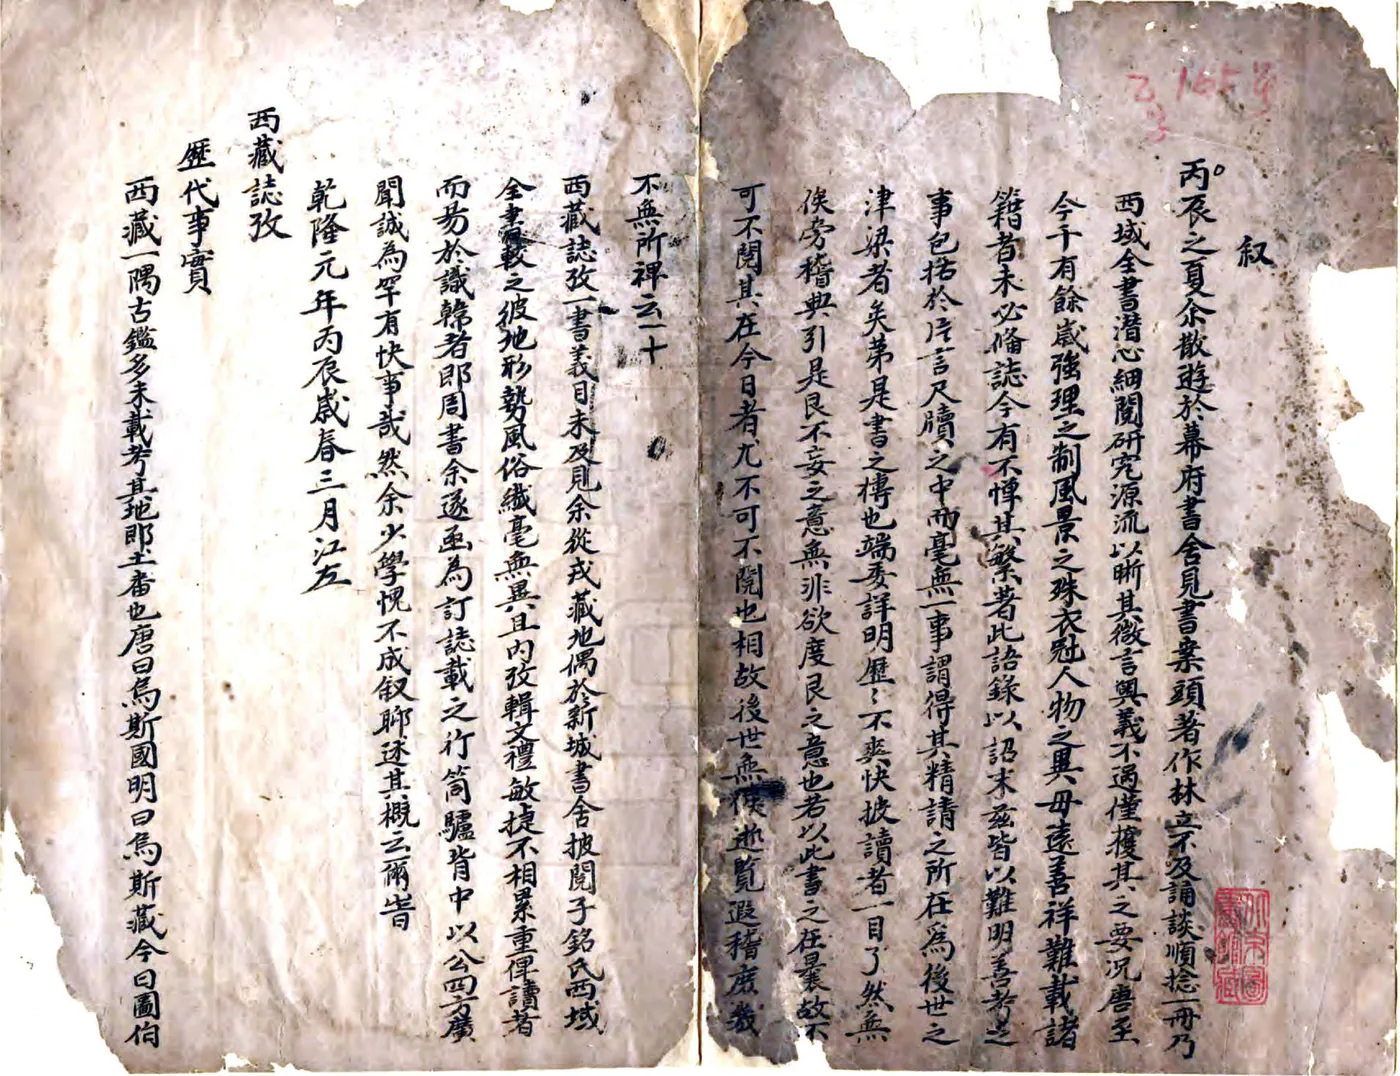 叙
丙辰之夏余散遊於幕府書舍見書案頭著作林立不及誦談順捻一冊乃
西域全書潛心細閱研究源流以晰其微言奧義不過僅擭其之要况唐至
今千有餘歲強理之制風景之殊衣冠人物之異毋遠善祥難載諸
籍者未必俻誌今有不憚其繁著此語錄以詔末茲皆以難明善考之
事包括於片言尺牘之中而毫無一事謂得其精請之所在為後世之
津梁者矣苐是書之槫也端委詳明歷〻不爽快披讀者一目了然無
俟旁稽典引是艮不妄之意無非欲度艮之意也若以此書之在曩故不
可不閱其在今日者尤不可不閱也相故後世無俟逖覧遐稽庻幾
不無所裨云一十
西藏誌攷一書義目未及見余從戎藏地偶於新城書舍披閱子銘氏西域
全書較之彼地形勢風俗纖毫無異且内攷輯文禮敏捷不相累重俾讀者
而易於識韓者即周書余遂函為訂誌載之行笥驢背中以公四方廣
聞誠為罕有快事哉然余少學愧不成叙聊述其概云爾旹
乾隆元年丙辰歲春三月江左
西藏誌攷
歷代事實
西藏一隅古鑑多未載考其地即土番也唐曰烏斯國明曰烏斯藏今曰圖伯